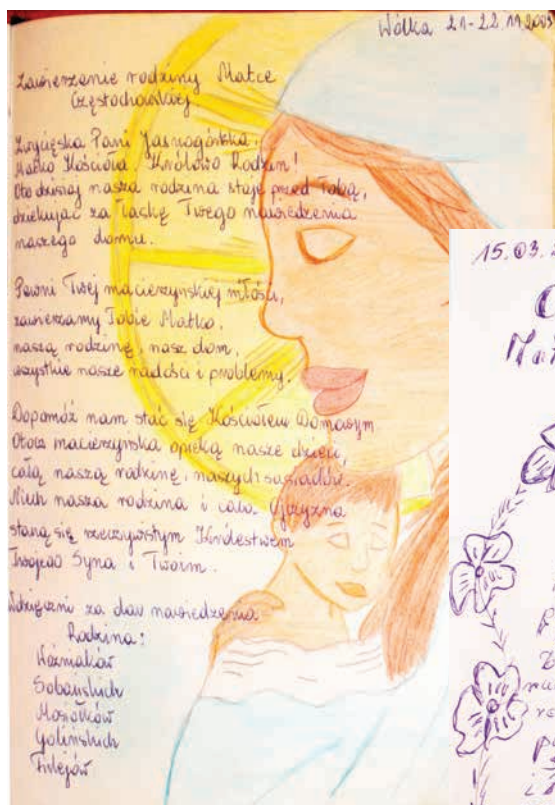 Wólka 21-22.11.2003
Zawierzenie rodziny Matce
Częstochowskiej.
Zwycięska Pani Jasnogórska,
Matko Kościoła, Królowo Rodzin!
Oto dzisiaj nasza rodzina staje przed Tobą,
dziękując za łaskę Twego nawiedzenia
naszego domu.
Pewni Twej macierzyńskiej miłości,
zawierzamy Tobie Matko,
naszą rodzinę, nasz dom,
wszystkie nasze radości i problemy.
Dopomóż nam stać się Kościołem Domowym
Otocz macierzyńską opieką nasze dzieci,
całą naszą rodzinę, naszych sąsiadów.
Niech nasza rodzina i cała Ojczyzna
staną się rzeczywistym Królestwem
Twojego Syna i Twoim.
Wdzięczni za dar nawiedzenia
Rodzina:
Woźniaków
Sobańskich
Mosiołków
Golińskich
Filejów
15.03.2